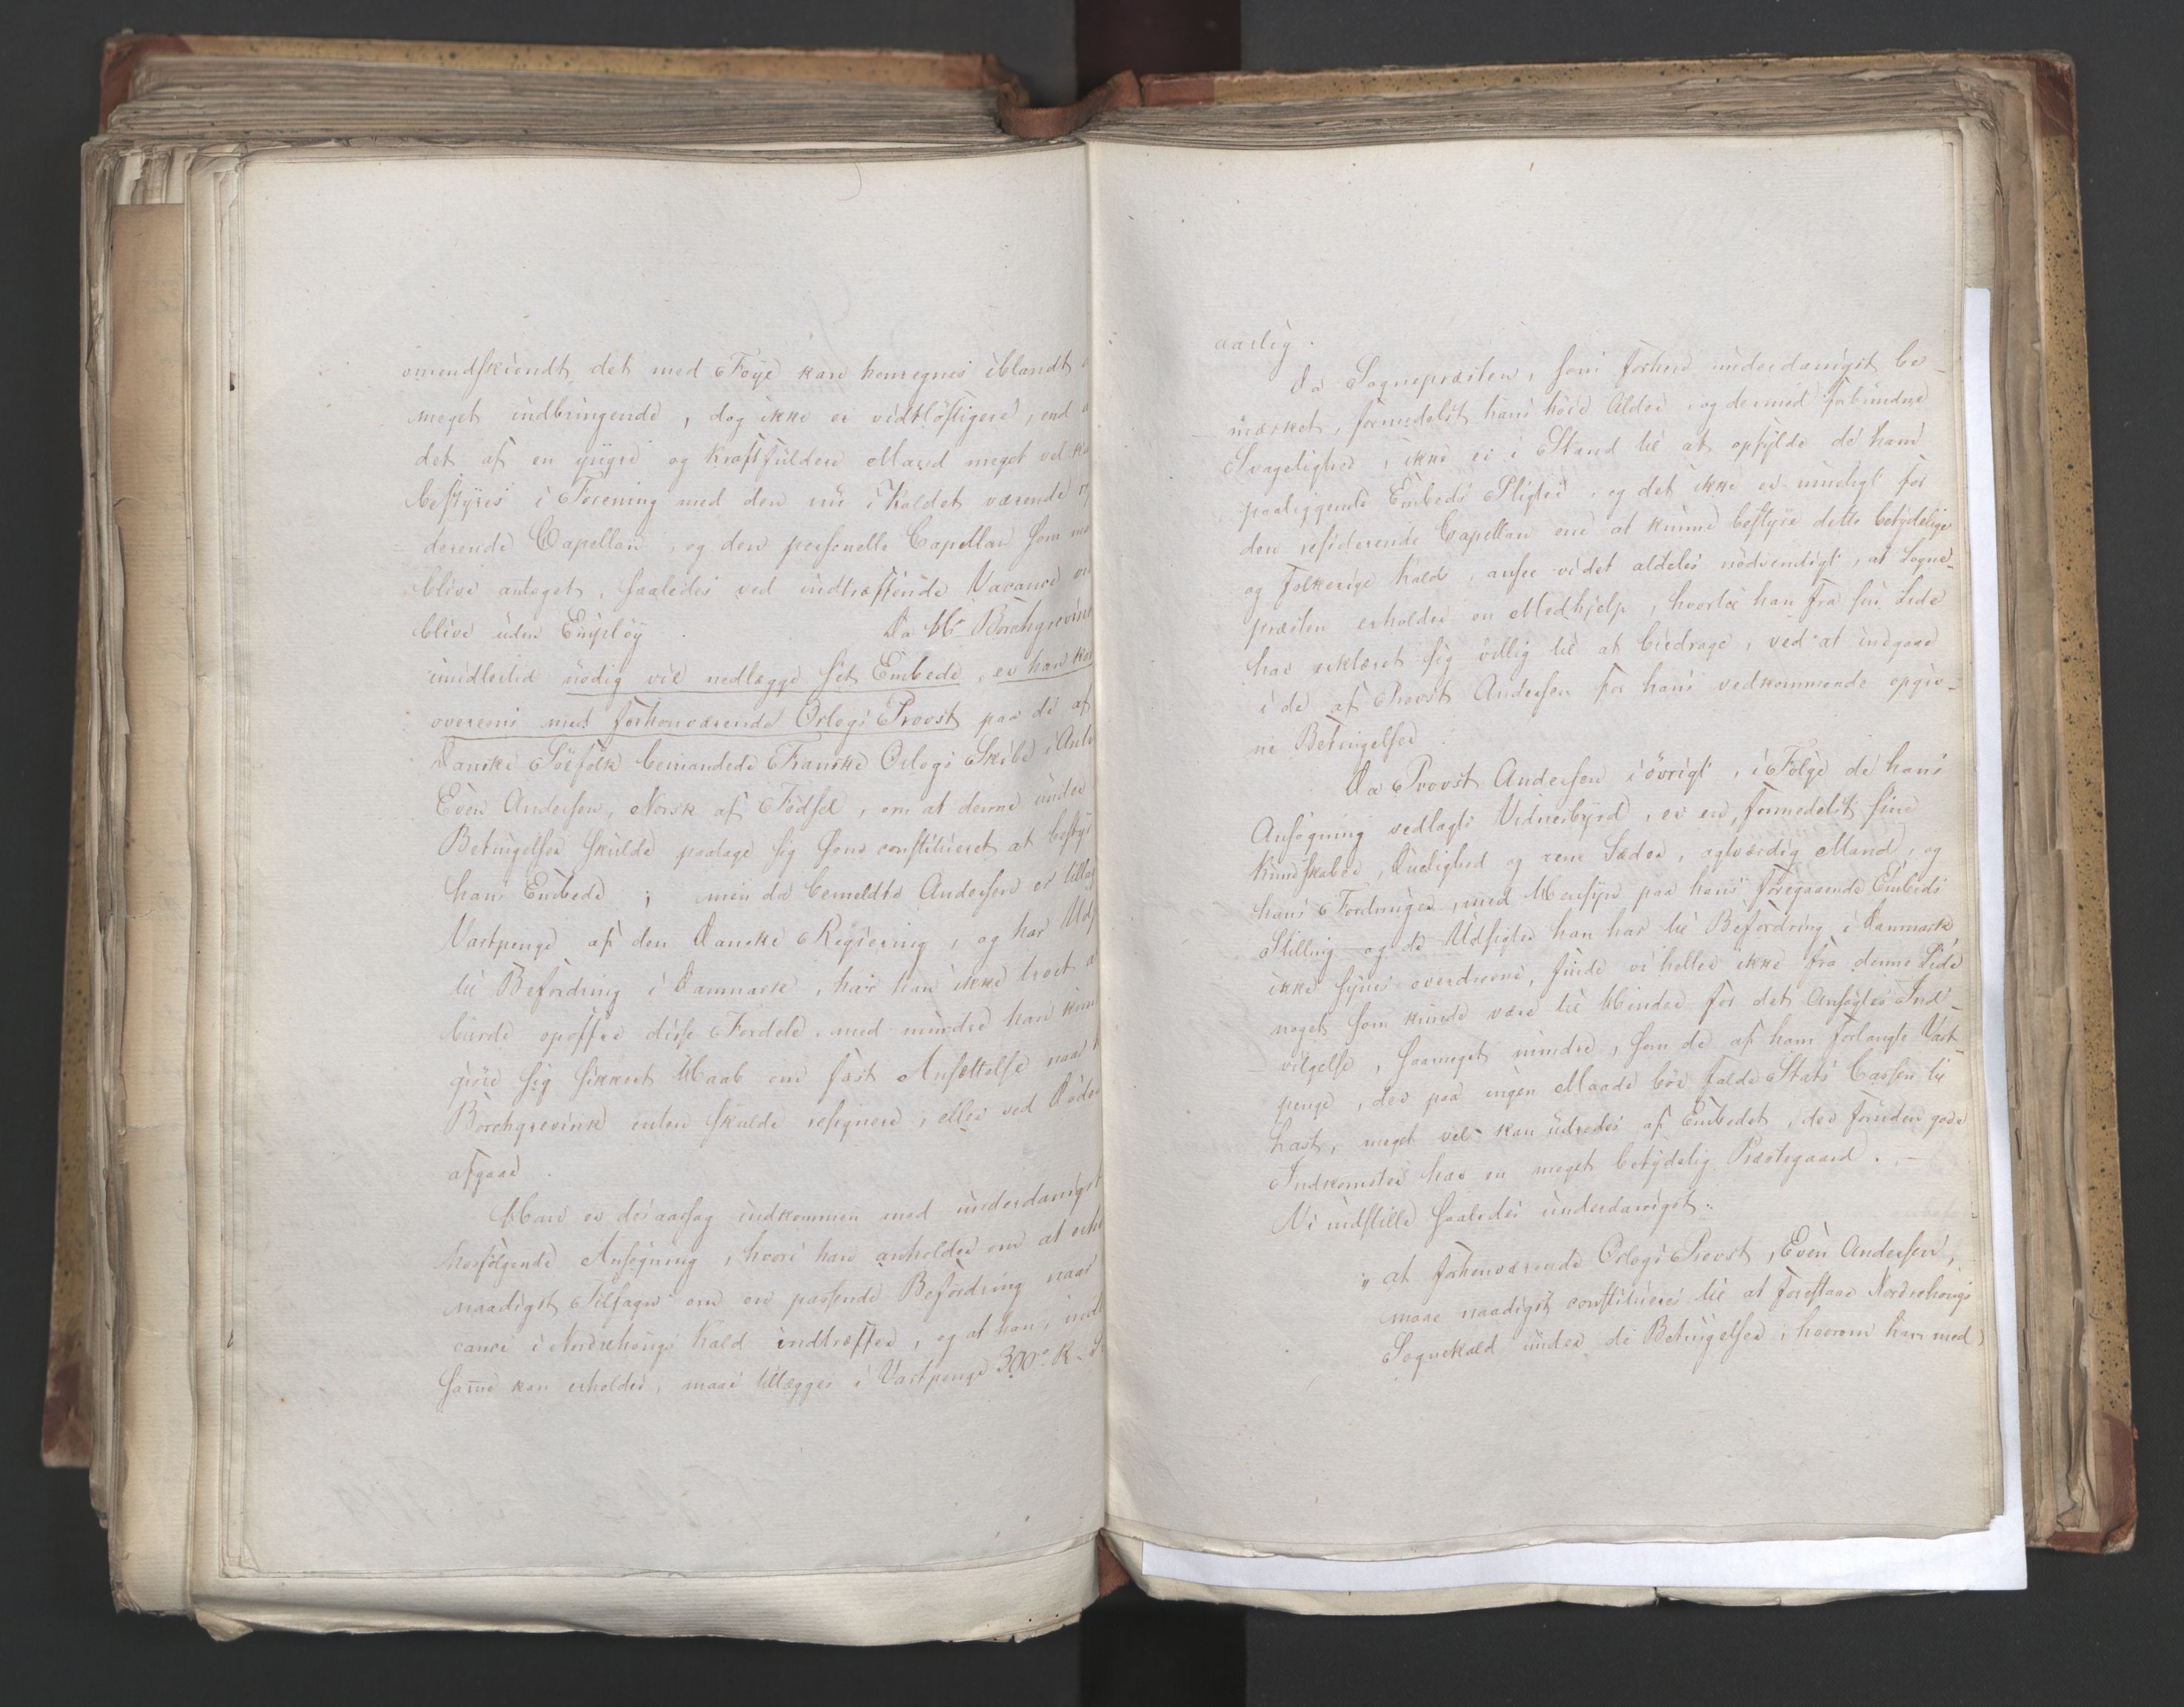 omendskiöndt det med Föye kan henregnes iblandt
meget indbringende, dog ikke er vidtlöftigere, end
det af en yngre og kraftfuldere Mand meget vel
bestyres i Forening med den nu i Kaldet værende
derende Capellan, og den personelle Capellan som
blive antaget, saaledes ved indtræffende Vacance
blive uden Employ. Da Hr Borchgrevink
imidlertid nödig vil nedlægge sit Embede, er han
overeens med forhenværende Orlogs Provst paa de af
Danske Söefolk bemandede Franske Orlogs Skibe i
Even Andersen, Norsk af Födsel, om at denne under
Betingelser skulde paatage sig som constitueret at
hans Embede; men da bemeldte Andersen er
Vartpenge af den Danske Regiering, og har
til Befordring i Danmark, har han ikke troet
burde opoffre disse Fordele, med mindre han
giöre sig sikkert Haab om fast Ansættelse naar
Borchgrevink enten skulde resignere, eller ved
afgaae.
Han er desaarsag indkommen med underdanigst
hosfölgende Ansögning, hvori han anholder om at
naadigst Tilsagn om en passende Befordring naar
cance i Norderhougs Kald indtræffer, og at han,
same kan erholdes, maae tillægges i Vartpenge 300
aarlig.
Da Sognepræsten, som forhen underdanigst be-
mærket, formedelst hans höie Alder, og dermed forbundne
Svagelighed, ikke er i Stand til at opfylde de ham
paaliggende Embeds Pligter, og det ikke er mueligt for
den residerende Capellan ene at kunne bestyre dette betydelige
og folkerige Kald, ansee vi det aldeles nödvendigt, at Sogne-
præsten erholder en Medhjelp, hvortil han fra sin Side
har erklæret sig villig til at bidrage, ved at indgaae
i de af Provst Andersen for hans vedkommende opgiv-
ne Betingelser.
Da Provst Andersen i övrigt, i Fölge de hans
Ansögning vedlagte Vidnesbyrd, er en, formedelst sine
Kundskaber, Duelighed og rene Sæder, agtværdig Mand, og
hans Fordringer, med Hensyn paa hans foregaaende Embeds
Stilling og de Udsigter han har til Befordring i Danmark
ikke synes overdrevne, finde vi heller ikke fra denne Side
noget som kunde være til Hinder for det Ansögtes Ind-
vilgelse, saameget mindre, som de af ham forlangte Vart-
penge, der paa ingen Maade bör falde Stats Cassen til
Last, meget vel kan udredes af Embedet, der foruden gode
Indkomster har en meget betydelig Præstegaard. -
Vi indstille saaledes underdanigst:
"at forhenværende Orlogs Provst, Even Andersen,
maae naadigst constitueres til at forestaae Norderhougs
Sognekald under de Betingelser, hvorom han med